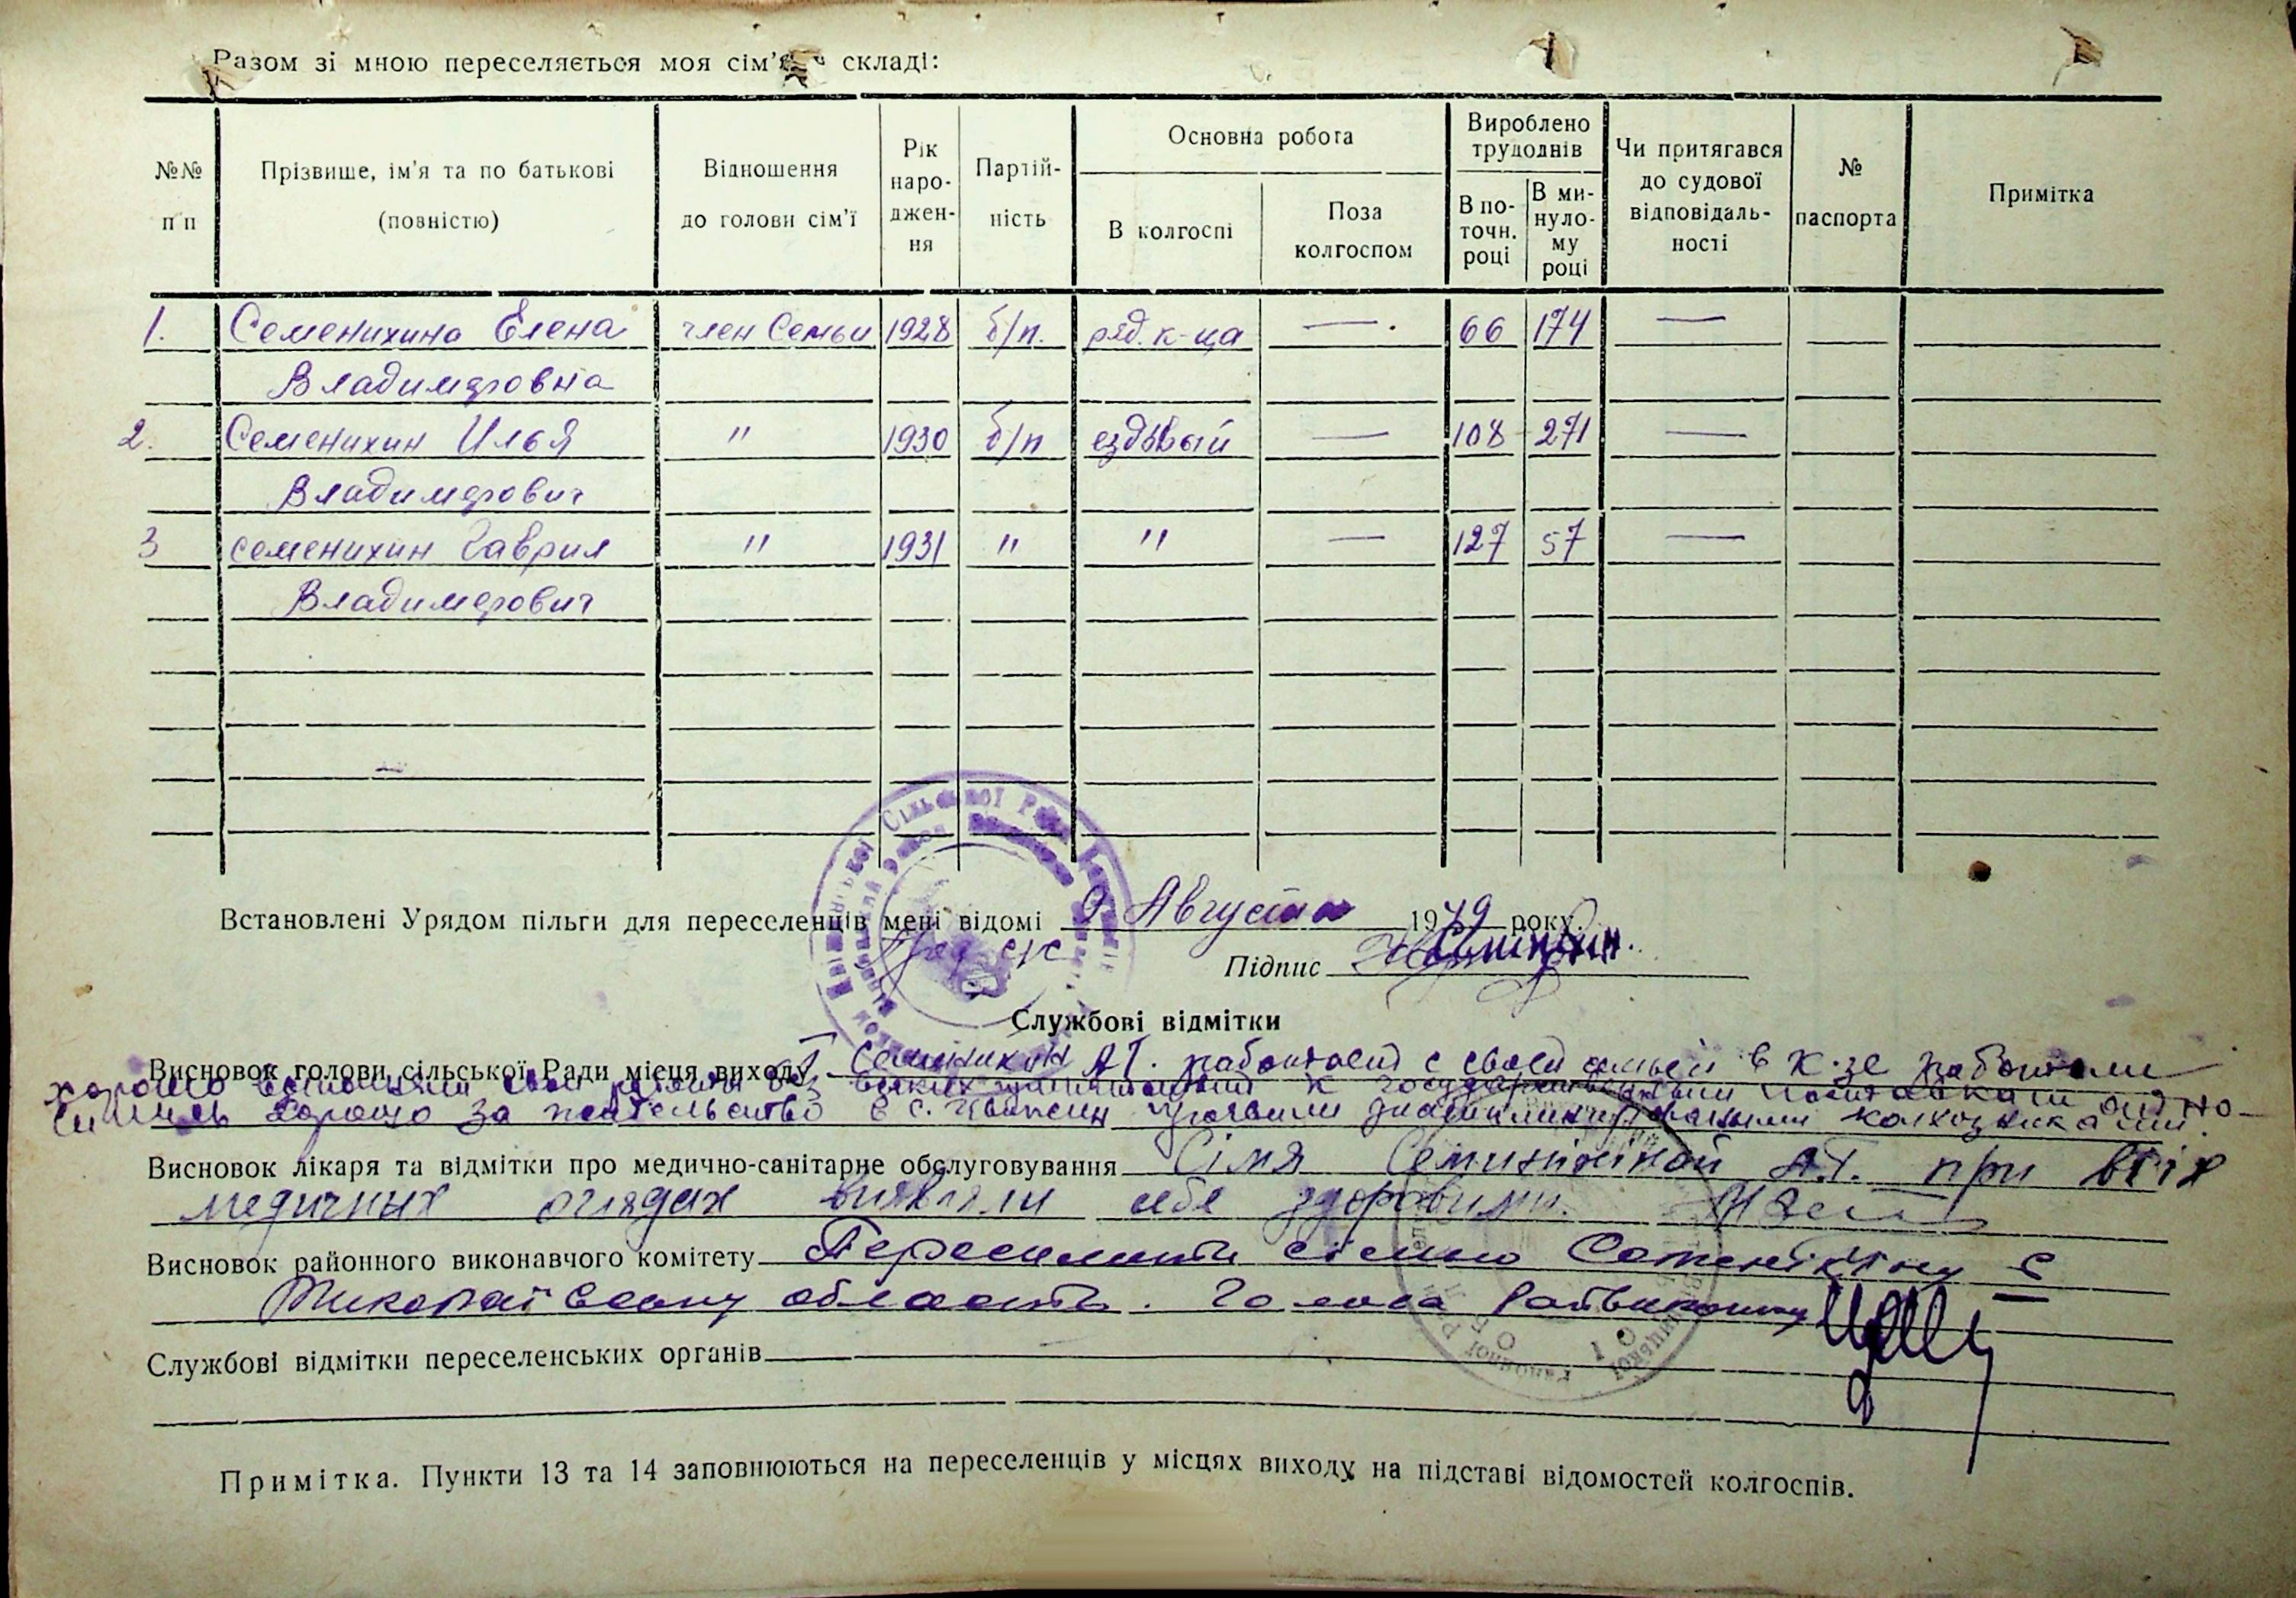 Разом зі мною переселяється моя сім'я складі:
№№ п п Прізвище, ім'я та по батькові (повністю) Відношення до голови сім'ї Рік народження Партійність Основна робота В колгоспі Поза колгоспом Вироблено трудоднів В поточн. році В минулому році Чи притягався до судової відповідальності № паспорта Примітка
1. Семенихина Елена член Семьи 1928 б/п. ряд. к-ца —. 66 174 —
Владимировна
2. Семенихин Илья " 1930 б/п ездовый — 108 271 —
Владимирович
3 Семенихин Гаврил " 1931 " " — 127 57 —
Владимирович
Встановлені Урядом пільги для переселенців мені відомі 9 Августа 1949 року.
Підпис
Службові відмітки
Висновок голови сільської Ради місця виходу Семенихин А.Т. работает с своей семьей в к-зе работали
хорошо свои без всяких к государственным
хорошо за в с. колхозниками.
Висновок лікаря та відмітки про медично-санітарне обслуговування Сімя А.Т. при всіх
медичних оглядах виявили себе здоровими.
Висновок районного виконавчого комітету Переселить сімю Семенихіну в
Миколаївську область. Голова Райвиконкому
Службові відмітки переселенських органів
Примітка. Пункти 13 та 14 заповнюються на переселенців у місцях виходу на підставі відомостей колгоспів.